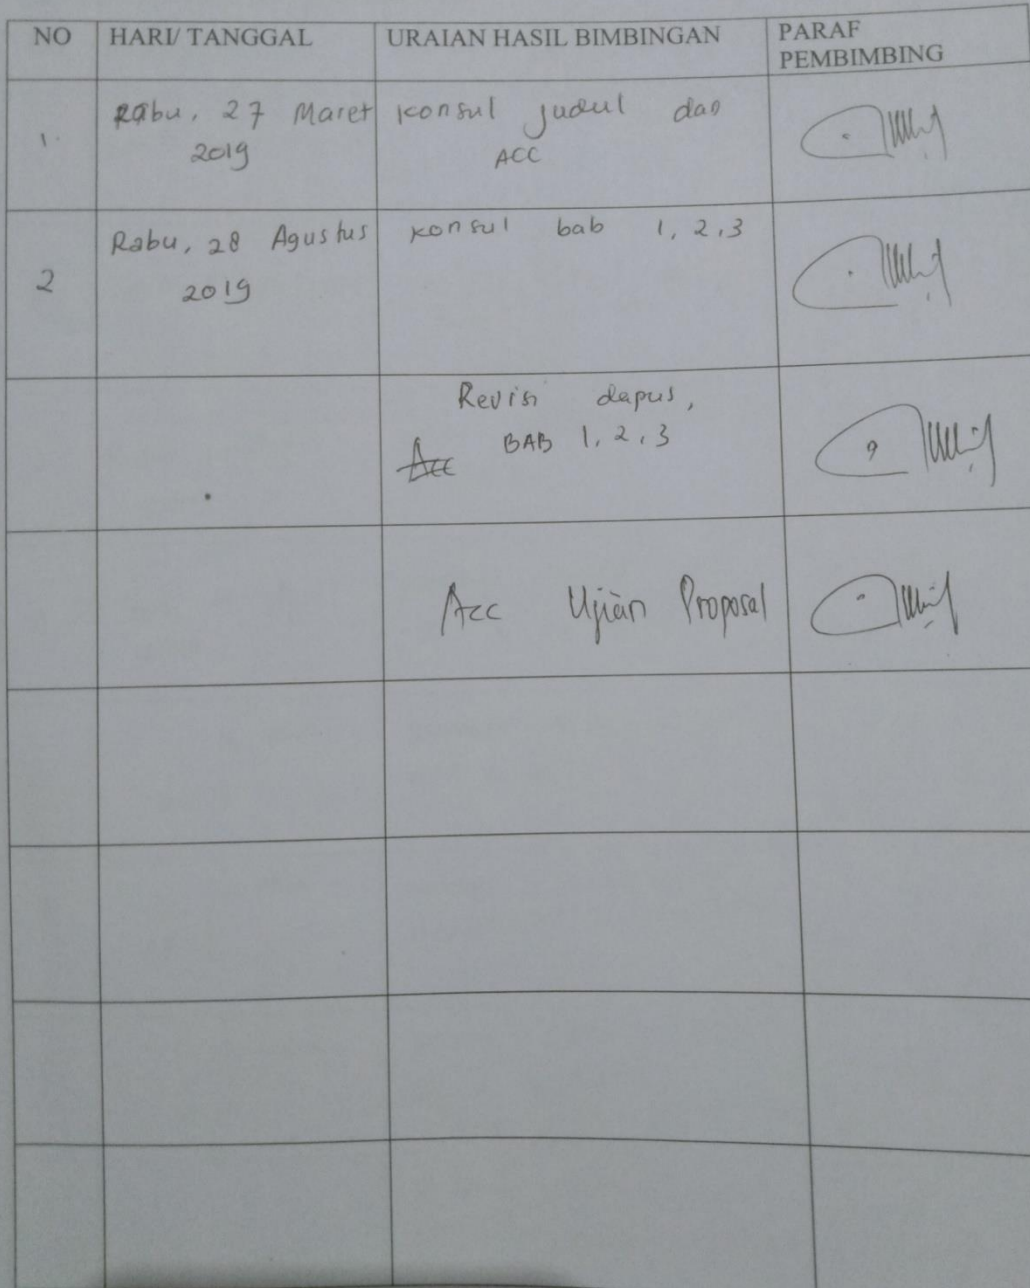 NO HARI/ TANGGAL URAIAN HASIL BIMBINGAN PARAF
PEMBIMBING
1. Rabu, 27 Maret konsul judul dan
2019 ACC
Rabu, 28 Agustus konsul bab 1, 2, 3
2 2019
Revisi dapus,
Acc BAB 1, 2, 3
Acc Ujian Proposal